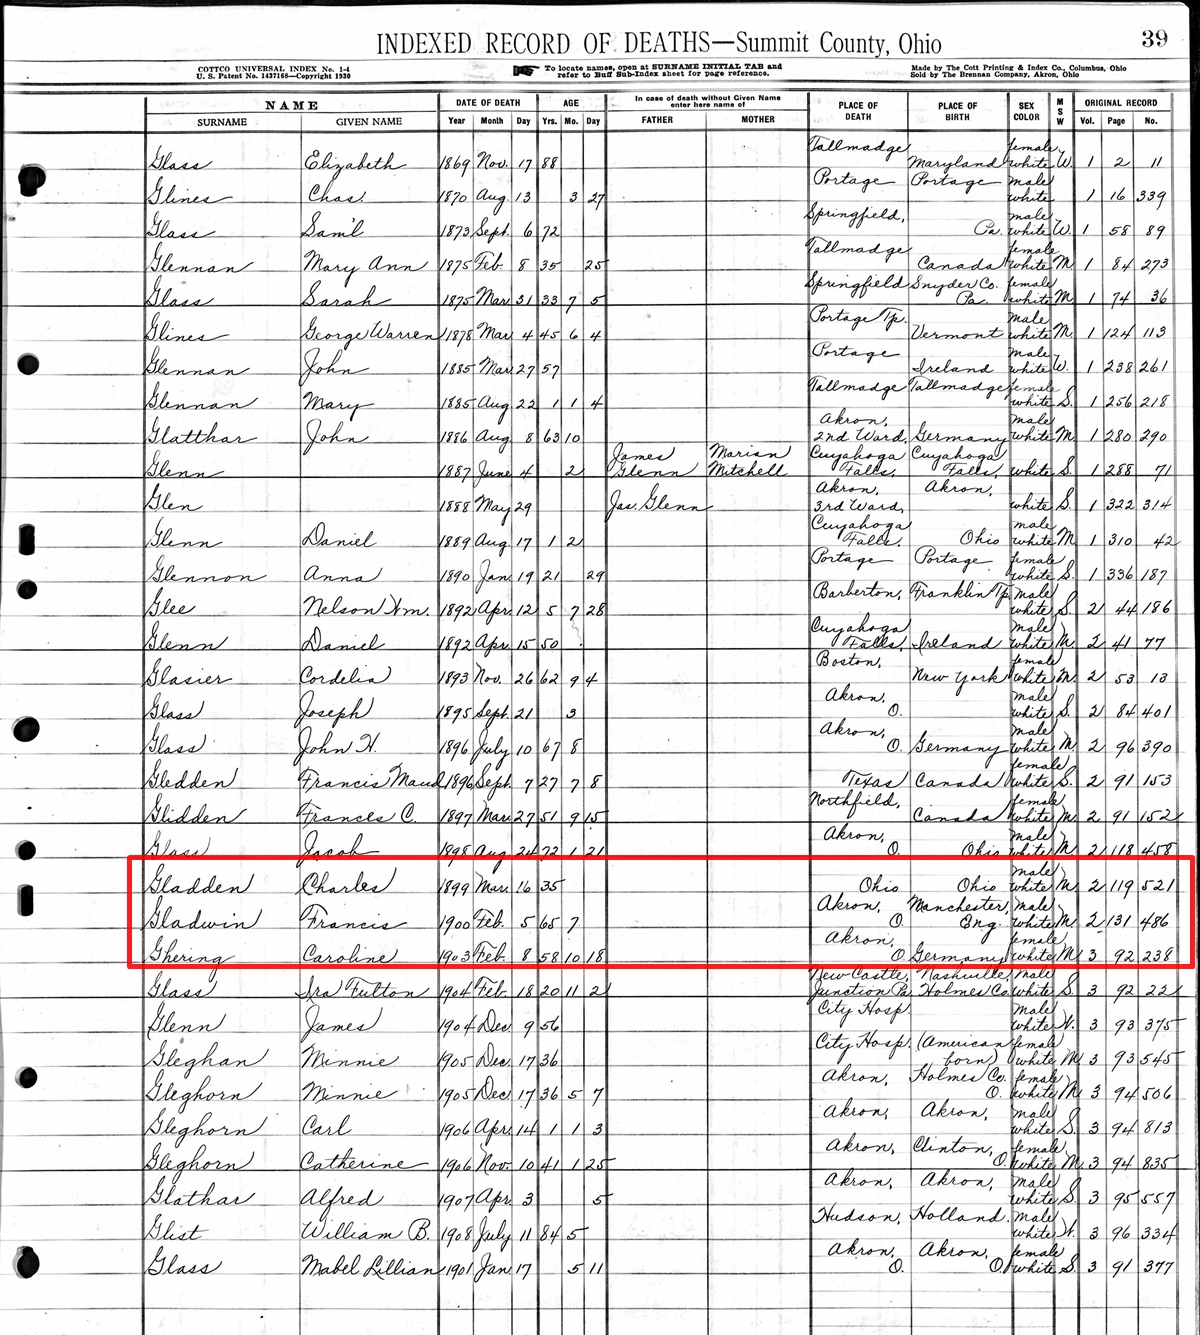 39
INDEXED RECORD OF DEATHS—Summit County, Ohio
COTTCO UNIVERSAL INDEX No. 1-4
U. S. Patent No. 1437168—Copyright 1930
To locate names, open at SURNAME INITIAL TAB and
refer to Buff Sub-Index sheet for page reference.
Made by The Cott Printing & Index Co., Columbus, Ohio
Sold by The Brennan Company, Akron, Ohio
NAME DATE OF DEATH AGE In case of death without Given Name enter here name of PLACE OF DEATH PLACE OF BIRTH SEX COLOR M S W ORIGINAL RECORD
SURNAME GIVEN NAME Year Month Day Yrs. Mo. Day FATHER MOTHER Vol. Page No.
Glass Elizabeth 1869 Nov. 17 88 Tallmadge Maryland female white W. 1 2 11
Glines Chas. 1870 Aug 13 3 27 Portage Portage male white 1 16 339
Glass Sam'l 1873 Sept. 6 72 Springfield, Pa. male white W. 1 58 89
Glennan Mary Ann 1875 Feb. 8 35 25 Tallmadge Canada female white M. 1 84 273
Glass Sarah 1875 Mar. 31 33 7 5 Springfield Snyder Co. Pa. female white M. 1 74 36
Glines George Warren 1878 Mar. 4 45 6 4 Portage Tp. Vermont male white M. 1 124 113
Glennan John 1885 Mar. 27 57 Portage Ireland male white W. 1 238 261
Glennan Mary 1885 Aug 22 1 1 4 Tallmadge Tallmadge female white S. 1 256 218
Glatthar John 1886 Aug 8 63 10 Akron, 2nd Ward, Germany male white M. 1 280 290
Glenn 1887 June 4 2 James Glenn Marian Mitchell Cuyahoga Falls, Cuyahoga Falls, white S. 1 288 71
Glen 1888 May 29 Jas. Glenn Akron, 3rd Ward, Akron, white S. 1 322 314
Glenn Daniel 1889 Aug. 17 1 2 Cuyahoga Falls. Ohio male white M. 1 310 42
Glennon Anna 1890 Jan. 19 21 29 Portage Portage female white S. 1 336 187
Glee Nelson Wm. 1892 Apr. 12 5 7 28 Barberton, Franklin Tp. male white S. 2 44 186
Glenn Daniel 1892 Apr. 15 50 Cuyahoga Falls, Ireland male white M. 2 41 77
Glasier Cordelia 1893 Nov. 26 62 9 4 Boston, New York female white M. 2 53 13
Glass Joseph 1895 Sept. 21 3 Akron, O. male white S. 2 84 401
Glass John H. 1896 July 10 67 8 Akron, O. Germany male white M. 2 96 390
Gledden Francis Maud 1896 Sept. 7 27 7 8 Texas Canada female white S. 2 91 153
Glidden Frances C. 1897 Mar. 27 51 9 15 Northfield, Canada female white M. 2 91 152
Glass Jacob 1898 Aug 24 72 1 21 Akron, O. Ohio male white M. 2 118 458
Gladden Charles 1899 Mar. 16 35 Ohio Ohio male white M. 2 119 521
Gladwin Francis 1900 Feb. 5 65 7 Akron, O. Manchester, Eng. male white M. 2 131 486
Ghering Caroline 1903 Feb. 8 58 10 18 Akron, O. Germany female white M 3 92 238
Glass Ira Fulton 1904 Feb. 18 20 11 2 New Castle, Junction Pa. Nashville Holmes Co. male white S 3 92 22
Glenn James 1904 Dec 9 56 City Hosp. male white W. 3 93 375
Gleghan Minnie 1905 Dec. 17 36 City Hosp. (American born) female white M 3 93 545
Gleghorn Minnie 1905 Dec. 17 36 5 7 Akron, Holmes Co. O. female white M 3 94 506
Gleghorn Carl 1906 Apr. 14 1 1 3 Akron, Akron, male white S. 3 94 813
Gleghorn Catherine 1906 Nov. 10 41 1 25 Akron, Clinton, O. female white M. 3 94 835
Glathar Alfred 1907 Apr. 3 5 Akron, Akron, male white S. 3 95 557
Glist William B. 1908 July 11 84 5 Hudson, Holland. male white W. 3 96 334
Glass Mabel Lillian 1901 Jan. 17 5 11 Akron, O. Akron, O. female white S. 3 91 377